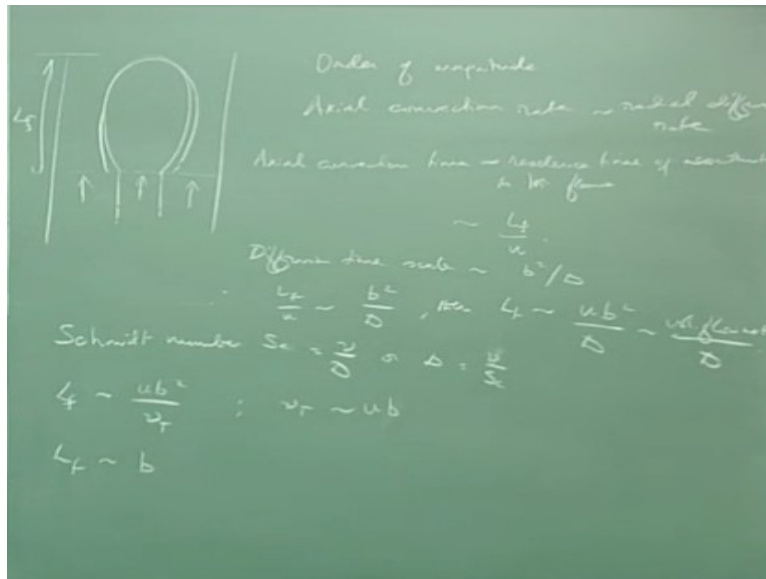 L_f
Order of magnitude
Axial convection rate ~ radial diffusion
rate
Axial convection time ~ residence time of reactants
in the flame
~ L_f/u
Diffusion time scale ~ b²/D
L_f/u ~ b²/D , then L_f ~ ub²/D ~ vol. flow rate/D
Schmidt number Sc = ν/D or D = ν/Sc
L_f ~ ub²/ν_T ; ν_T ~ ub
L_f ~ b